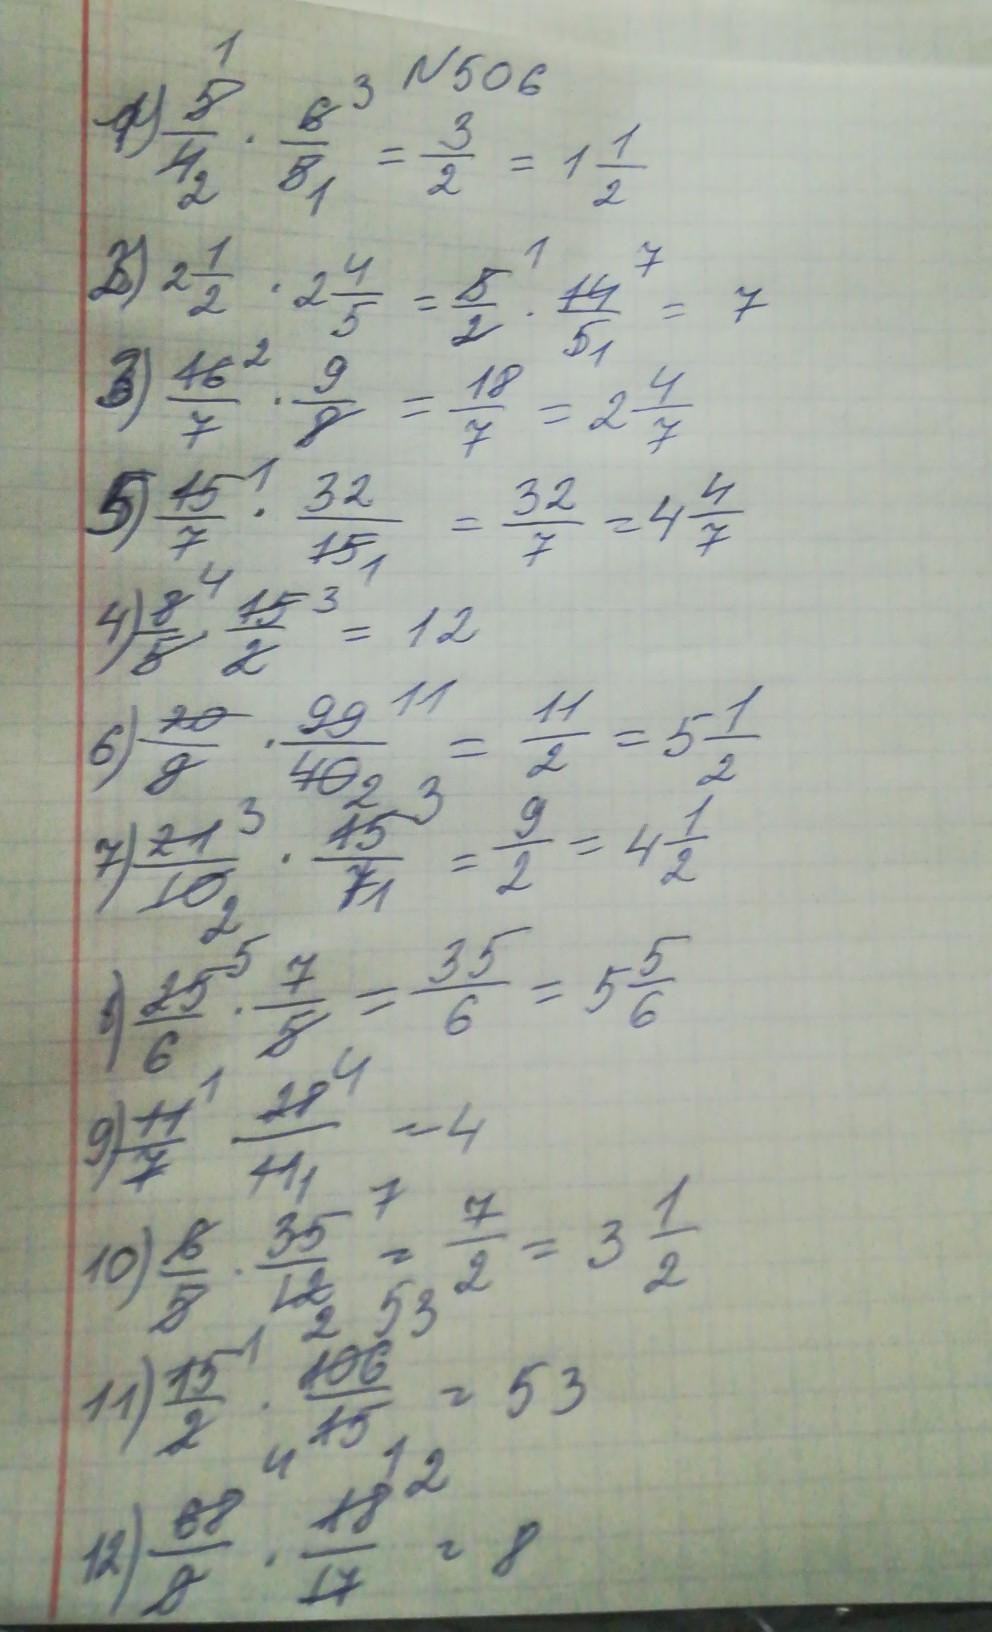 №506
1) 5/4 1 2 · 6/5 3 1 = 3/2 = 1 1/2
2) 2 1/2 · 2 4/5 = 5/2 1 · 14/5 7 1 = 7
3) 16/7 2 · 9/8 = 18/7 = 2 4/7
5) 15/7 1 · 32/15 1 = 32/7 = 4 4/7
4) 8/5 4 · 15/2 3 = 12
6) 20/9 · 99/40 11 2 = 11/2 = 5 1/2
7) 21/10 3 2 · 15/7 3 1 = 9/2 = 4 1/2
8) 25/6 5 · 7/5 = 35/6 = 5 5/6
9) 11/7 1 28/11 4 1 = 4
10) 6/5 · 35/12 7 2 = 7/2 = 3 1/2
11) 15/2 1 · 106/15 53 = 53
12) 68/9 4 · 18/17 2 = 8